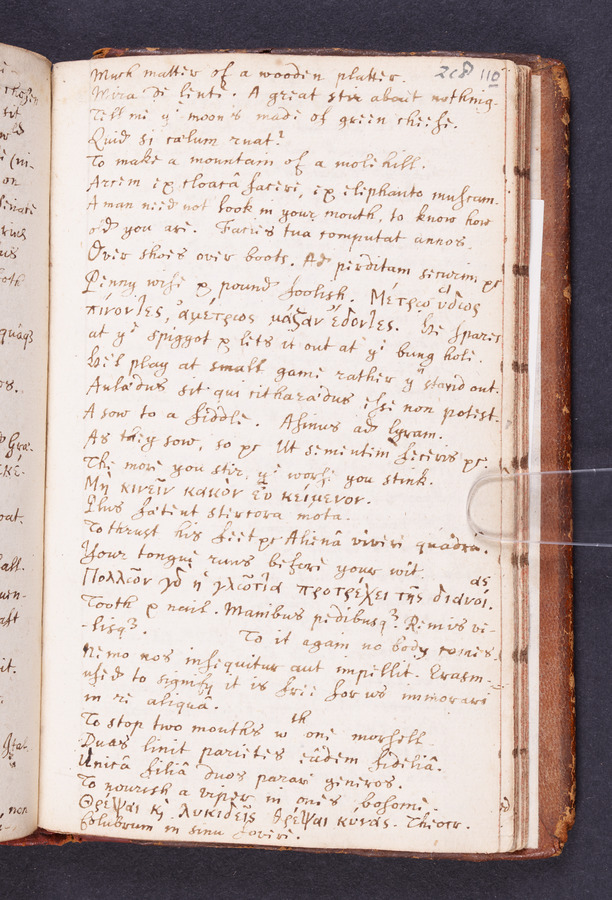 208 110
Much matter of a wooden platter.
Mira de lente. A great stir about nothing.
Tell me yᵉ moon's made of green cheese.
Quid si cælum ruat?
To make a mountain of a molehill.
Arcem ex cloacâ facere, ex elephanto muscam.
A man need not look in your mouth, to know how
old you are. Facies tua computat annos.
Over shoes over boots. Ad perditam securim pc
Penny wise & pound foolish. Μέτρῳ ὕδωρ
πίνοντες, ἀμέτρως μάζαν ἔδοντες. He spares
at yᵉ spiggot & lets it out at yᵉ bung hole.
He'l play at small game rather yⁿ stand out.
Aulædus sit qui citharædus esse non potest.
A sow to a fiddle. Asinus ad lyram.
As they sow, so pc Ut sementem feceris pc.
The more you stir, yᵉ worse you stink.
Μη κινεῖν κακὸν εὖ κείμενον.
Plus fœtent stercora mota.
To thrust his feet pc Alienâ vivere quadra.
Your tongue runs before your wit.
Πολλῶν γὸ ἡ γλῶττα προτρέχει τῆς διανοίας.
Tooth & nail. Manibus pedibusq³. Remis ve-
-lisq³. To it again no body comes
Nemo nos insequitur aut impellit. Erasm-
used to signify it is free for us immorari
in re aliquâ.
To stop two mouths wᵗʰ one morsell.
Duas linit parietes eâdem fideliâ.
Unicâ filiâ duos parare generos.
To nourish a viper in ones bosome.
Θρεψαι κὶ λυκιδεῖς θρεψαι κυνάς. Theocr.
Colubrum in sinu fovere.